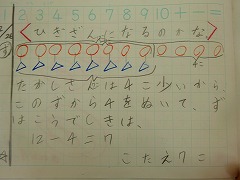 2 3 4 5 6 7 8 9 10 + − =
ひきざんになるのかな
4こ
たかしさんは4こ少いから、
このずから4をぬいて、ず
はこうでしきは、
12−4=7
こたえ7こ